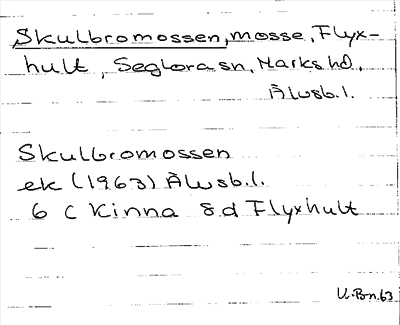 Skulbromossen, mosse, Flyx-
hult, Seglora sn, Marks hd,
Älvsb. l.
Skulbromossen
ek (1963) Älvsb. l.
6 C Kinna 8 d Flyxhult
U. Bn. 63